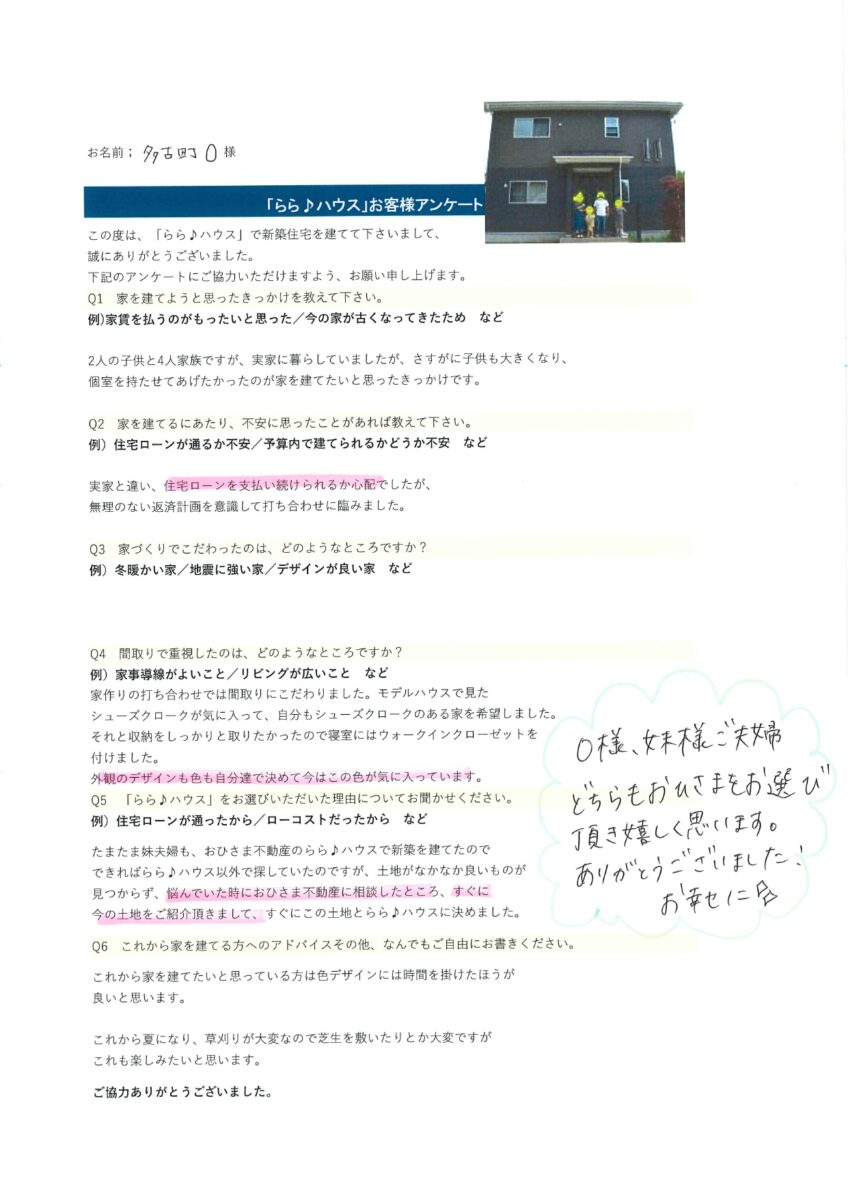 お名前; 多古町 O 様
「らら♪ハウス」お客様アンケート
この度は、「らら♪ハウス」で新築住宅を建てて下さいまして、
誠にありがとうございました。
下記のアンケートにご協力いただけますよう、お願い申し上げます。
Q1 家を建てようと思ったきっかけを教えて下さい。
例)家賃を払うのがもったいと思った/今の家が古くなってきたため など
2人の子供と4人家族ですが、実家に暮らしていましたが、さすがに子供も大きくなり、
個室を持たせてあげたかったのが家を建てたいと思ったきっかけです。
Q2 家を建てるにあたり、不安に思ったことがあれば教えて下さい。
例)住宅ローンが通るか不安/予算内で建てられるかどうか不安 など
実家と違い、住宅ローンを支払い続けられるか心配でしたが、
無理のない返済計画を意識して打ち合わせに臨みました。
Q3 家づくりでこだわったのは、どのようなところですか?
例)冬暖かい家/地震に強い家/デザインが良い家 など
Q4 間取りで重視したのは、どのようなところですか?
例)家事導線がよいこと/リビングが広いこと など
家作りの打ち合わせでは間取りにこだわりました。モデルハウスで見た
シューズクロークが気に入って、自分もシューズクロークのある家を希望しました。
それと収納をしっかりと取りたかったので寝室にはウォークインクローゼットを
付けました。
外観のデザインも色も自分達で決めて今はこの色が気に入っています。
Q5 「らら♪ハウス」をお選びいただいた理由についてお聞かせください。
例)住宅ローンが通ったから/ローコストだったから など
たまたま妹夫婦も、おひさま不動産のらら♪ハウスで新築を建てたので
できればらら♪ハウス以外で探していたのですが、土地がなかなか良いものが
見つからず、悩んでいた時におひさま不動産に相談したところ、すぐに
今の土地をご紹介頂きまして、すぐにこの土地とらら♪ハウスに決めました。
Q6 これから家を建てる方へのアドバイスその他、なんでもご自由にお書きください。
これから家を建てたいと思っている方は色デザインには時間を掛けたほうが
良いと思います。
これから夏になり、草刈りが大変なので芝生を敷いたりとか大変ですが
これも楽しみたいと思います。
ご協力ありがとうございました。
O様、妹様ご夫婦
どちらもおひさまをお選び
頂き嬉しく思います。
ありがとうございました!
お幸せに